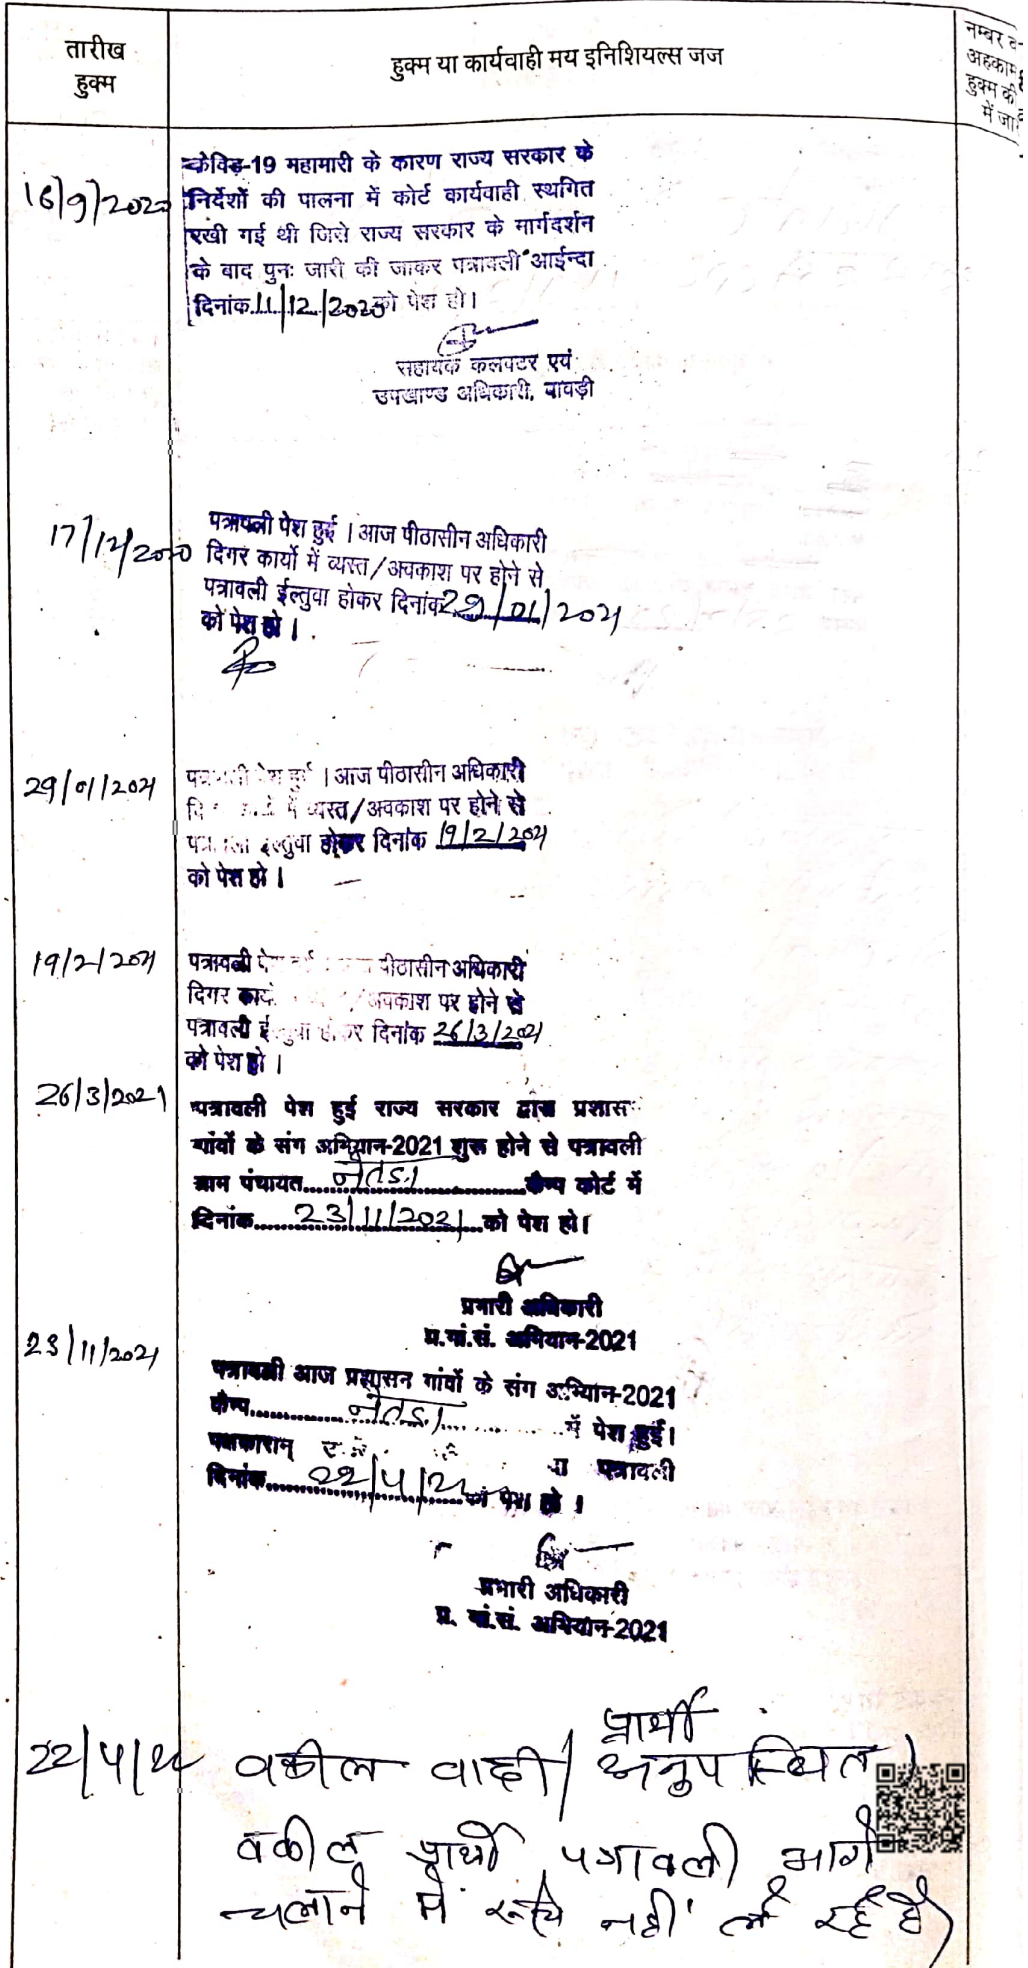 तारीख
हुक्म
हुक्म या कार्यवाही मय इनिशियल्स जज
नम्बर व
अहकाम
हुक्म की
में जा
16/9/2020
कोविड-19 महामारी के कारण राज्य सरकार के
निर्देशों की पालना में कोर्ट कार्यवाही स्थगित
रखी गई थी जिसे राज्य सरकार के मार्गदर्शन
के बाद पुनः जारी की जाकर पत्रावली आईन्दा
दिनांक 11/12/2020 को पेश हो।
सहायक कलक्टर एवं
उपखण्ड अधिकारी, बावड़ी
17/12/2020
पत्रावली पेश हुई । आज पीठासीन अधिकारी
दिगर कार्यो में व्यस्त/अवकाश पर होने से
पत्रावली ईल्तुवा होकर दिनांक 29/01/2021
को पेश हो ।
29/01/2021
पत्रावली पेश हुई । आज पीठासीन अधिकारी
में व्यस्त/अवकाश पर होने से
ईल्तुवा होकर दिनांक 19/2/2021
को पेश हो ।
19/2/2021
पत्रावली पीठासीन अधिकारी
दिगर अवकाश पर होने से
पत्रावली होकर दिनांक 26/3/2021
को पेश हो ।
26/3/2021
पत्रावली पेश हुई राज्य सरकार द्वारा प्रशास
गांवों के संग अभियान-2021 शुरू होने से पत्रावली
ग्राम पंचायत नेतड़ा कैम्प कोर्ट में
दिनांक 23/11/2021 को पेश हो।
प्रभारी अधिकारी
प्र.गां.सं. अभियान-2021
23/11/2021
पत्रावली आज प्रशासन गांवों के संग अभियान-2021
कैम्प नेतड़ा में पेश हुई।
पक्षकारान् पत्रावली
दिनांक 22/4/22 को पेश हो ।
प्रभारी अधिकारी
प्र. गां.सं. अभियान-2021
22/4/22
प्रार्थी
वकील वादी/ अनुपस्थित।
वकील प्रार्थी पत्रावली आगे
चलाने में रूचि नहीं ले रहे है।